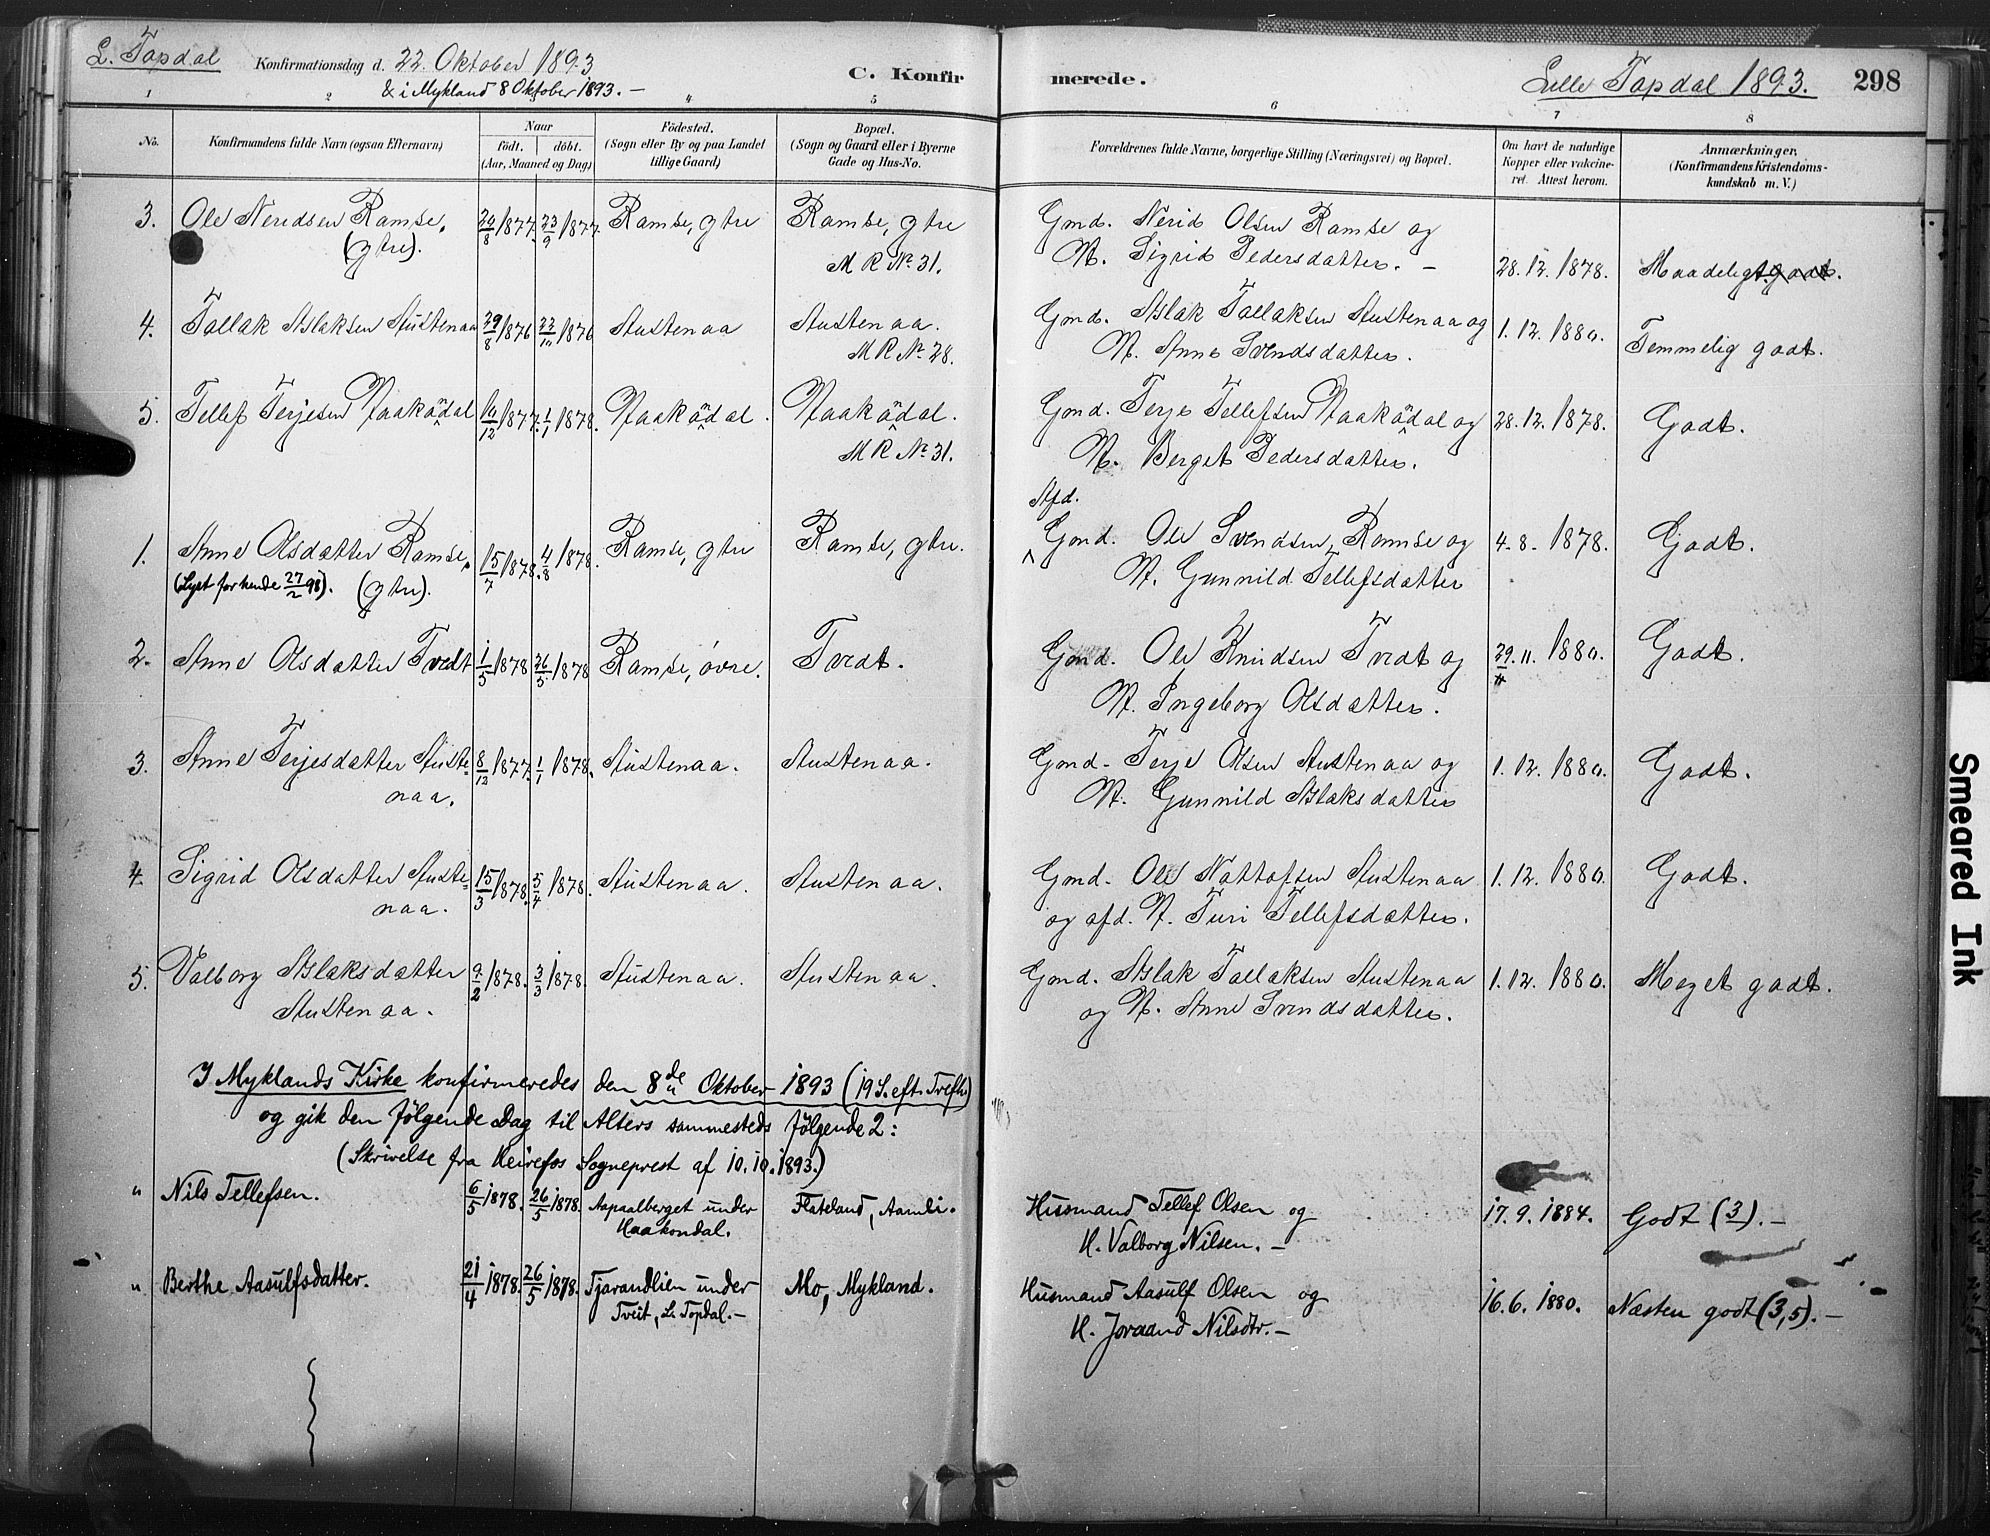 L. Topdal Konfirmationsdag d. 22. Oktober 1893
& i Mykland 8 Oktober 1893. —
C. Konfirmerede.
Lille Topdal 1893. 298
1 2 4 5 6 7 8
No. Konfirmandens fulde Navn (ogsaa Efternavn) Naar födt. döbt. (Aar, Maaned og Dag) Födested. (Sogn eller By og paa Landet tillige Gaard) Bopæl. (Sogn og Gaard eller i Byerne Gade og Hus-No. Forældrenes fulde Navne, borgerlige Stilling (Næringsvei) og Bopæl. Om havt de naturlige Kopper eller vakcineret. Attest herom. Anmærkninger. (Konfirmandens Kristendomskundskab m. V.)
3. Ole Neridsen Ramse, 20/8 1877. 23/9 1877. Ramse, ytre Ramse, ytre Gmd. Nerid Olsen Ramse og
(ytre). M R No. 31. H. Sigrid Pedersdatter. — 28. 12. 1878. Maadeligt godt.
4. Tallak Aslaksen Austenaa 29/8 1876 22/10 1876 Austenaa Austenaa. Gmd. Aslak Tallaksen Austenaa og 1. 12. 1880. Temmelig godt.
M R No. 28. H. Anne Svendsdatter.
5. Tellef Terjesen Haakondal 10/12 1877. 1/1 1878. Haakondal. Haakondal. Gmd. Terje Tellefsen Haakondal og 28. 12. 1878. Godt.
M R No. 31. H. Berget Pedersdatter.
Afd.
1. Anne Olsdatter Ramse, 15/7 1878. 4/8 1878. Ramse, ytre Ramse, ytre. Gmd. Ole Svendsen Ramse og 4. 8. 1878. Godt.
(Lyst for hende 27/2 98). (ytre). H. Gunnild Tellefsdatter
2. Anne Olsdatter Tvedt 1/5 1878 26/5 1878 Ramse, övre. Tvedt. Gmd. Ole Knudsen Tvedt og 29. 11. 1880. Godt.
H. Ingeborg Olsdatter.
3. Anne Terjesdatter Auste- 8/12 1877. 1/1 1878. Austenaa. Austenaa. Gmd. Terje Olsen Austenaa og 1. 12. 1880. Godt.
naa. H. Gunnild Aslaksdatter
4. Sigrid Olsdatter Auste- 15/3 1878. 5/4 1878. Austenaa. Austenaa. Gmd. Ole Nattolfsen Austenaa 1. 12. 1880. Godt.
naa. og afd. H. Turi Tellefsdatter.
5. Valborg Aslaksdatter 9/2 1878. 3/3 1878. Austenaa. Austenaa. Gmd. Aslak Tallaksen Austenaa 1. 12. 1880. Meget godt.
Austenaa. og H. Anne Svendsdatter.
I Myklands Kirke konfirmeredes den 8de Oktober 1893 (19 S. eft. Trefh.)
og gik den følgende Dag til Alters sammesteds følgende 2:
(Skrivelse fra Herefos Sogneprest af 10. 10. 1893.)
" Nils Tellefsen. 6/5 1878. 26/5 1878. Aapaalberget under Flateland, Aamli. Husmand Tellef Olsen og 17. 9. 1884. Godt (3). —
Haakondal. H. Valborg Nilsen. —
" Berthe Aasulfsdatter. 21/4 1878. 26/5 1878. Tjarandlien under Mo, Mykland. Husmand Aasulf Olsen og 16. 6. 1880. Næsten godt (3,5). —
Tveit, L. Topdal. — H. Joraand Nilsdtr. —
Smeared Ink